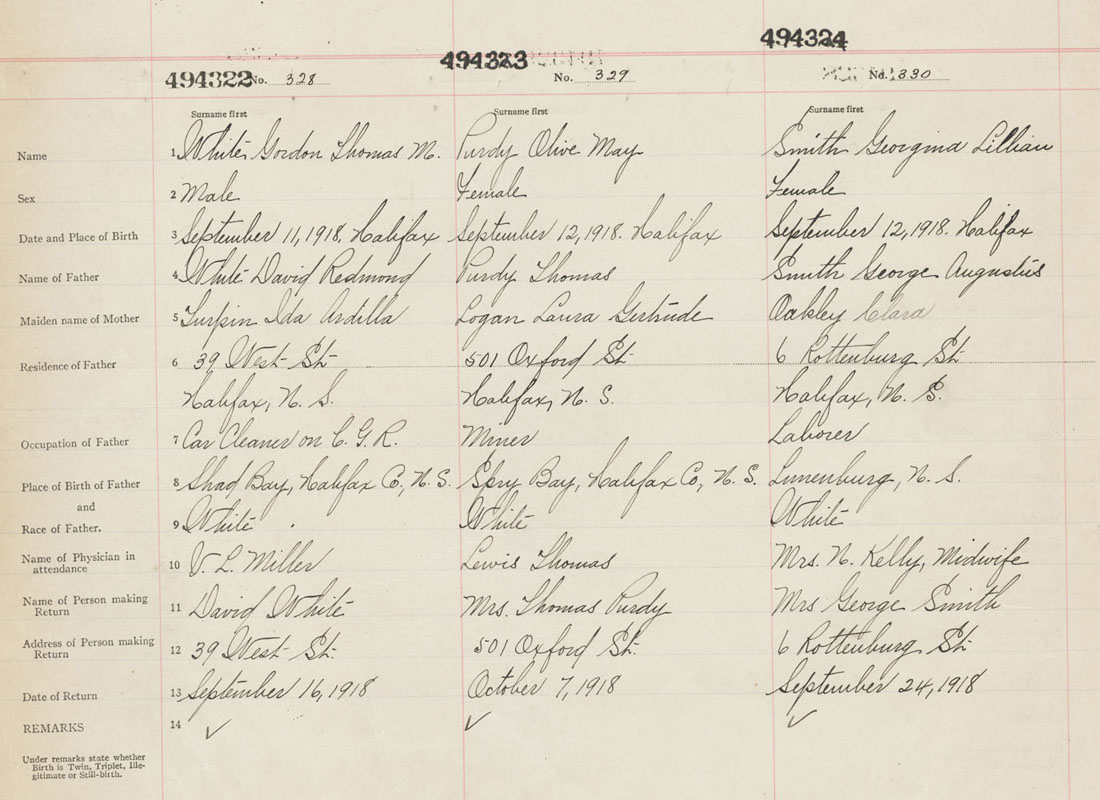 494322 No. 328 494323 No. 329 494324 No. 330
Surname first Surname first Surname first
Name 1 White Gordon Thomas M. Purdy Olive May Smith Georgina Lillian
Sex 2 Male Female Female
Date and Place of Birth 3 September 11, 1918. Halifax September 12, 1918. Halifax September 12, 1918. Halifax
Name of Father 4 White David Redmond Purdy Thomas Smith George Augustus
Maiden name of Mother 5 Turpin Ida Ardilla Logan Laura Gertrude Oakley Clara
Residence of Father 6 39 West St. 501 Oxford St. 6 Rottenburg St.
Halifax, N. S. Halifax, N. S. Halifax, N. S.
Occupation of Father 7 Car Cleaner on C. G. R. Miner Laborer
Place of Birth of Father 8 Shad Bay, Halifax Co, N. S. Spry Bay, Halifax Co, N. S. Lunenburg, N. S.
and
Race of Father. 9 White White White
Name of Physician in attendance 10 V. L. Miller Lewis Thomas Mrs. N. Kelly, Midwife
Name of Person making Return 11 David White Mrs. Thomas Purdy Mrs George Smith
Address of Person making Return 12 39 West St. 501 Oxford St. 6 Rottenburg St.
Date of Return 13 September 16, 1918 October 7, 1918 September 24, 1918
REMARKS 14 ✓ ✓ ✓
Under remarks state whether
Birth is Twin, Triplet, Ille-
gitimate or Still-birth.